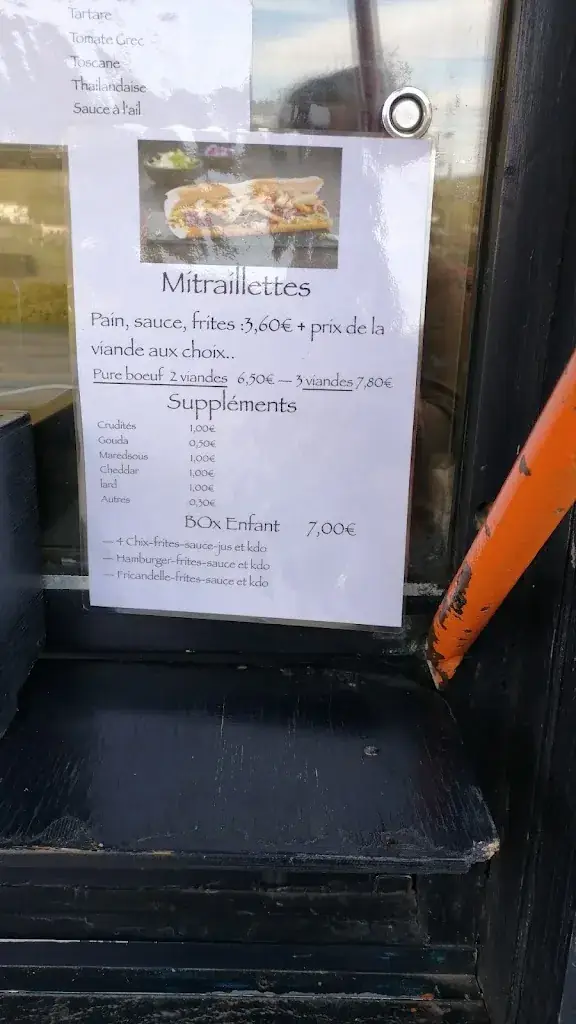 Tartare
Tomate Grec
Toscane
Thailandaise
Sauce à l'ail
Mitraillettes
Pain, sauce, frites :3,60€ + prix de la
viande aux choix..
Pure boeuf 2 viandes 6,50€ — 3 viandes 7,80€
Suppléments
Crudités 1,00€
Gouda 0,50€
Maredsous 1,00€
Cheddar 1,00€
lard 1,00€
Autres 0,30€
BOx Enfant 7,00€
— 4 Chix-frites-sauce-jus et kdo
— Hamburger-frites-sauce et kdo
— Fricandelle-frites-sauce et kdo